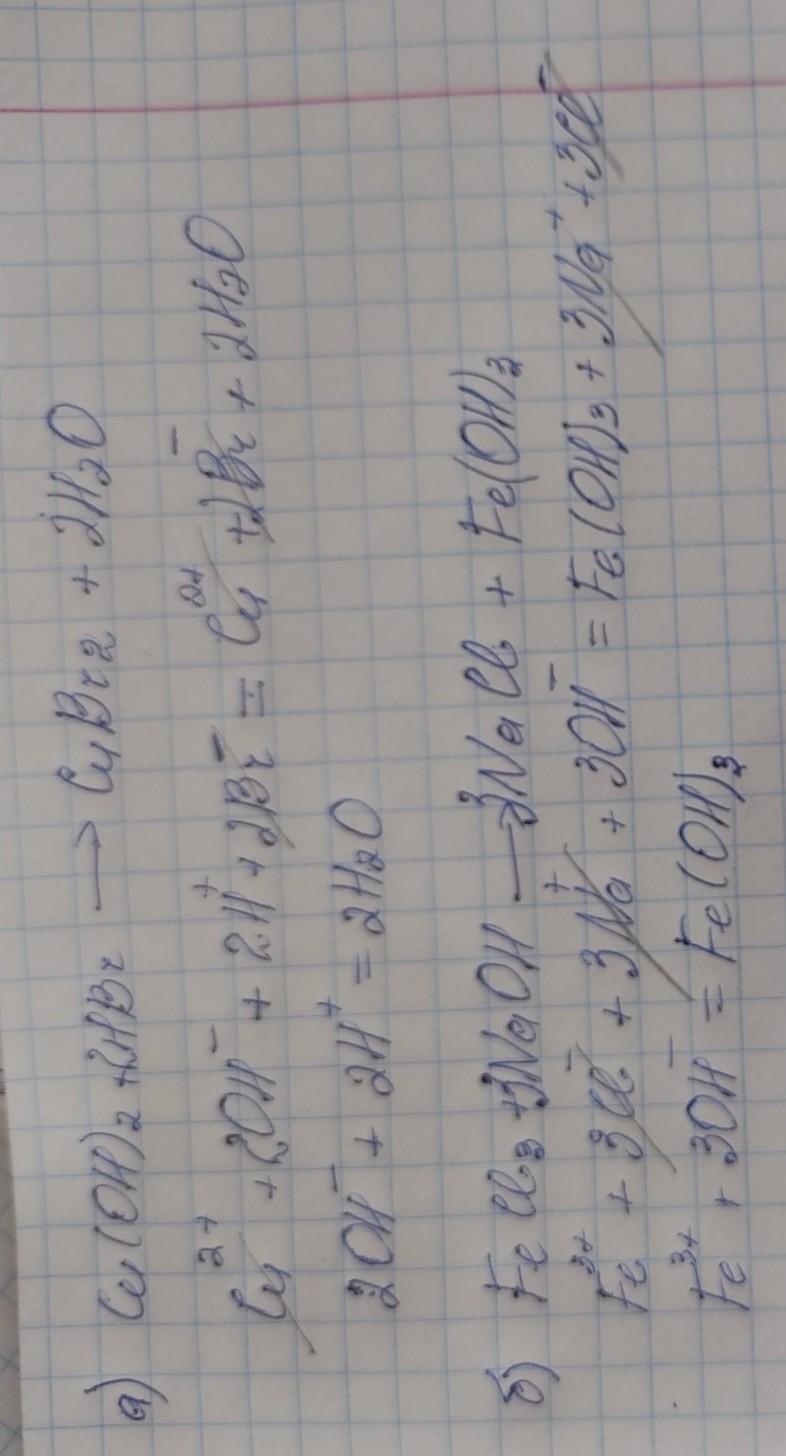 а) Cu(OH)₂ + 2HBr → CuBr₂ + 2H₂O
Cu²⁺ + 2OH⁻ + 2H⁺ + 2Br⁻ = Cu²⁺ + 2Br⁻ + 2H₂O
2OH⁻ + 2H⁺ = 2H₂O
б) FeCl₃ + 3NaOH → 3NaCl + Fe(OH)₃
Fe³⁺ + 3Cl⁻ + 3Na⁺ + 3OH⁻ = Fe(OH)₃ + 3Na⁺ + 3Cl⁻
Fe³⁺ + 3OH⁻ = Fe(OH)₃